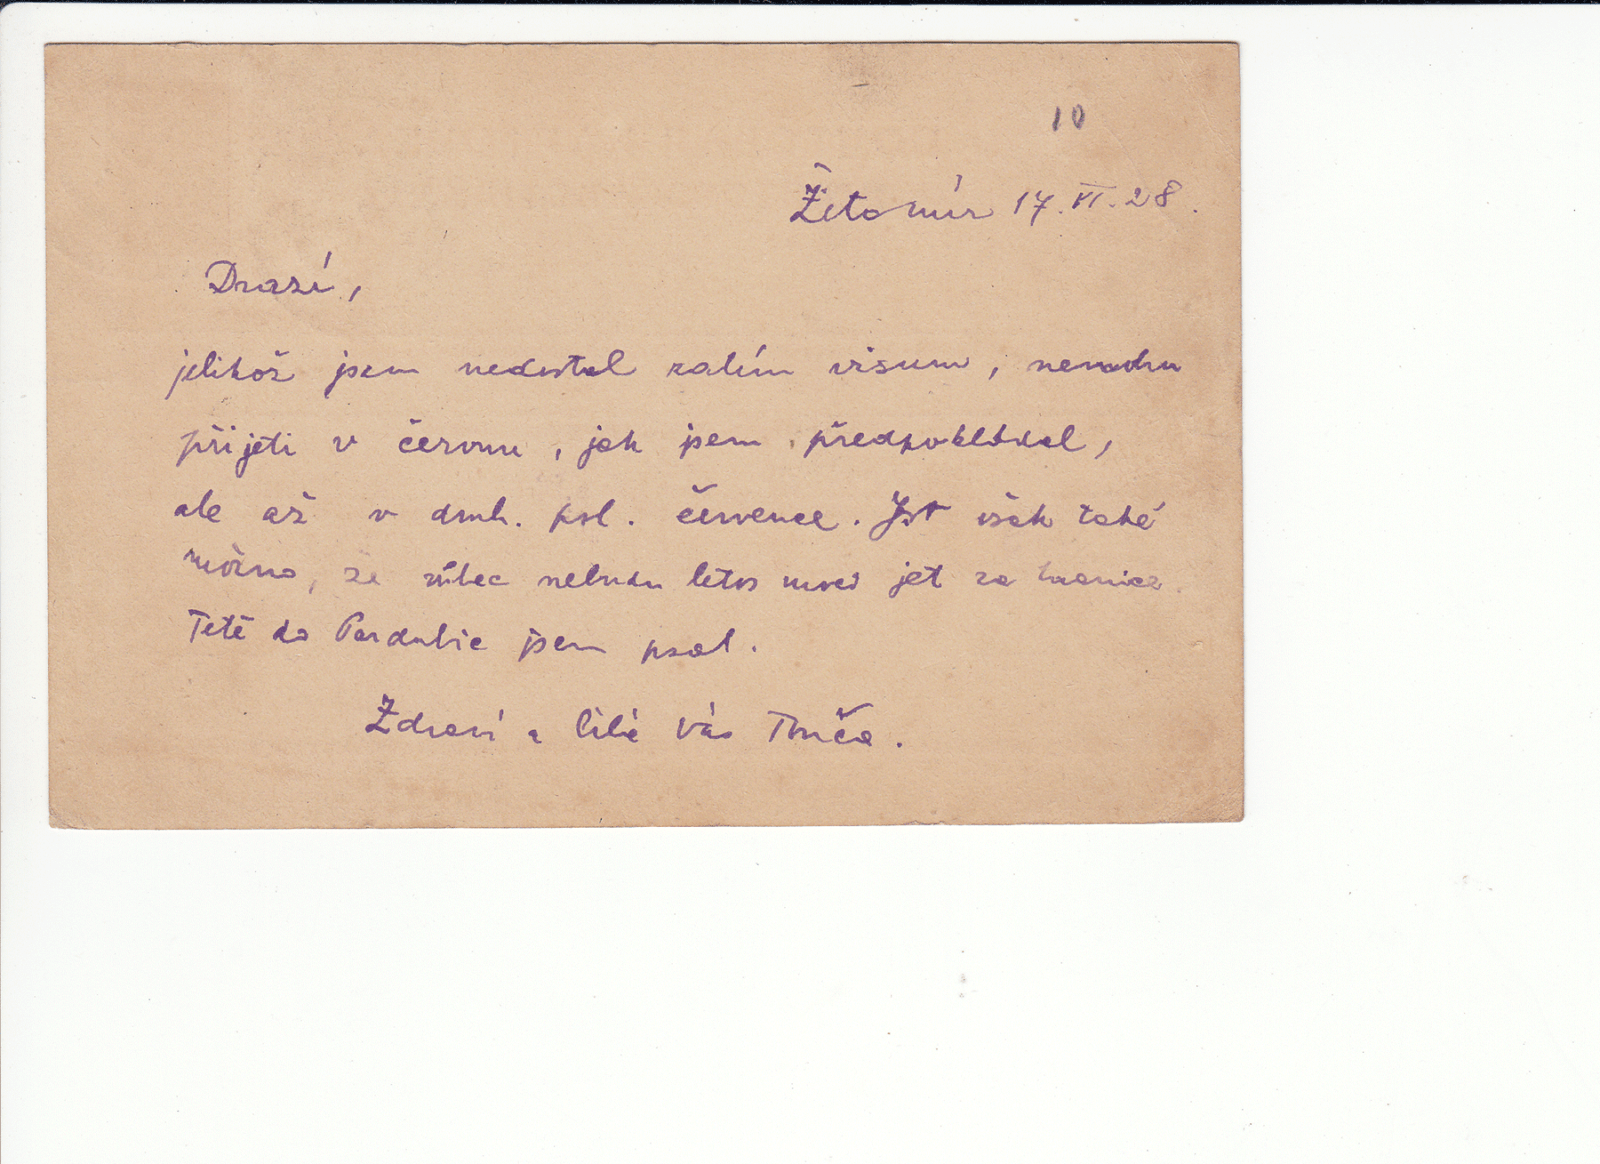 10
Žitomír 17.VI.28.
Drazí,
jelikož jsem nedostal zatím visum, nemohu
přijeti v červnu, jak jsem předpokládal,
ale až v druh. pol. července. Jest však také
možno, že vůbec nebudu letos moci jet za hranice
Tetě do Pardubic jsem psal.
Zdraví a líbá Vás